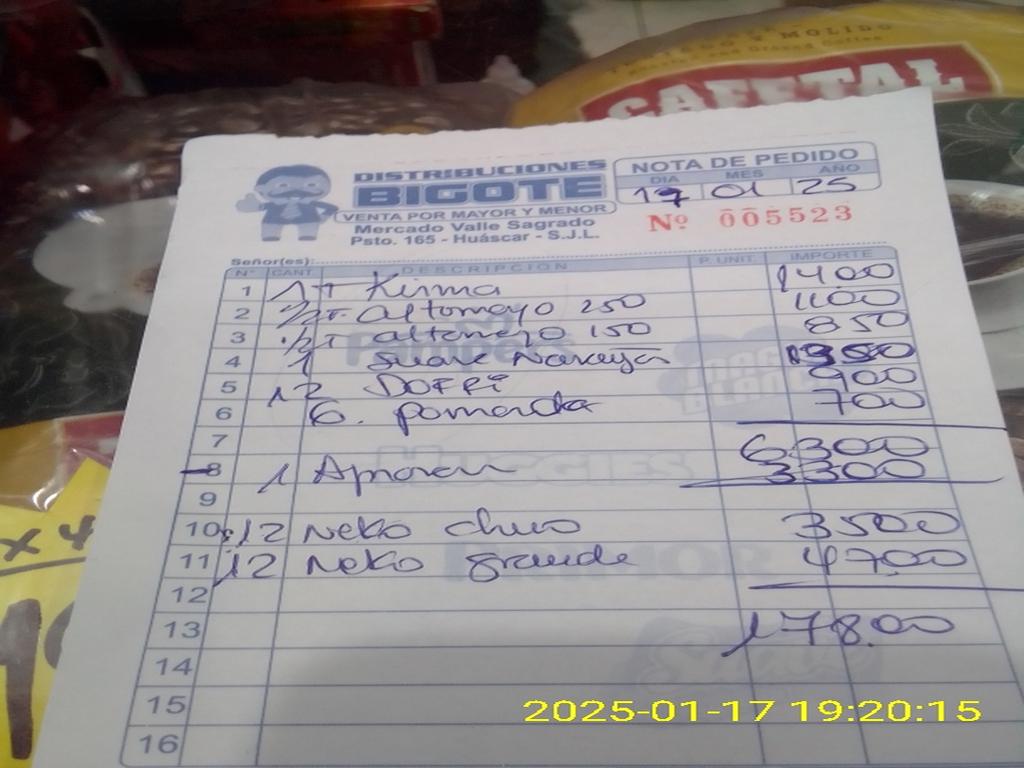 CAFETAL
DISTRIBUCIONES
BIGOTE
VENTA POR MAYOR Y MENOR
Mercado Valle Sagrado
Psto. 165 - Huáscar - S.J.L.
NOTA DE PEDIDO
DIA MES AÑO
17 01 25
Nº 005523
Señor(es):
Nº CANT. DESCRIPCION P. UNIT. IMPORTE
1 1T Kirma 1400
2 1/2T. Altomayo 250 1100
3 1/2T altomayo 150 850
4 1 Suave Naranja
5 12 DOFFI 900
6 6. pomada 700
7 6300
8 1 3300
9
10 12 Neko chico 3500
11 12 Neko grande 4700
12
13 178.00
14
15
16
x 4
HUGGIES
2025-01-17 19:20:15